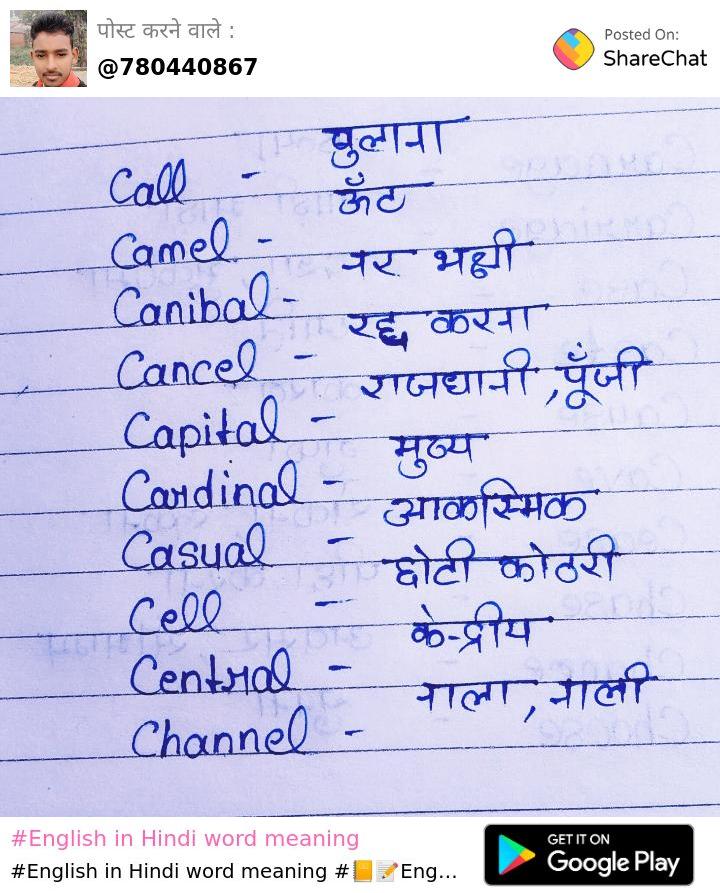 पोस्ट करने वाले :
@780440867
Posted On:
ShareChat
Call - बुलाना
Camel - ऊँट
Canibal - नर भक्षी
Cancel - रद्द करना
Capital - राजधानी, पूँजी
Cardinal - मुख्य
Casual - आकस्मिक
Cell - छोटी कोठरी
Central - केन्द्रीय
Channel - नाला, नाली
#English in Hindi word meaning
#English in Hindi word meaning #📒📝Eng...
GET IT ON
Google Play